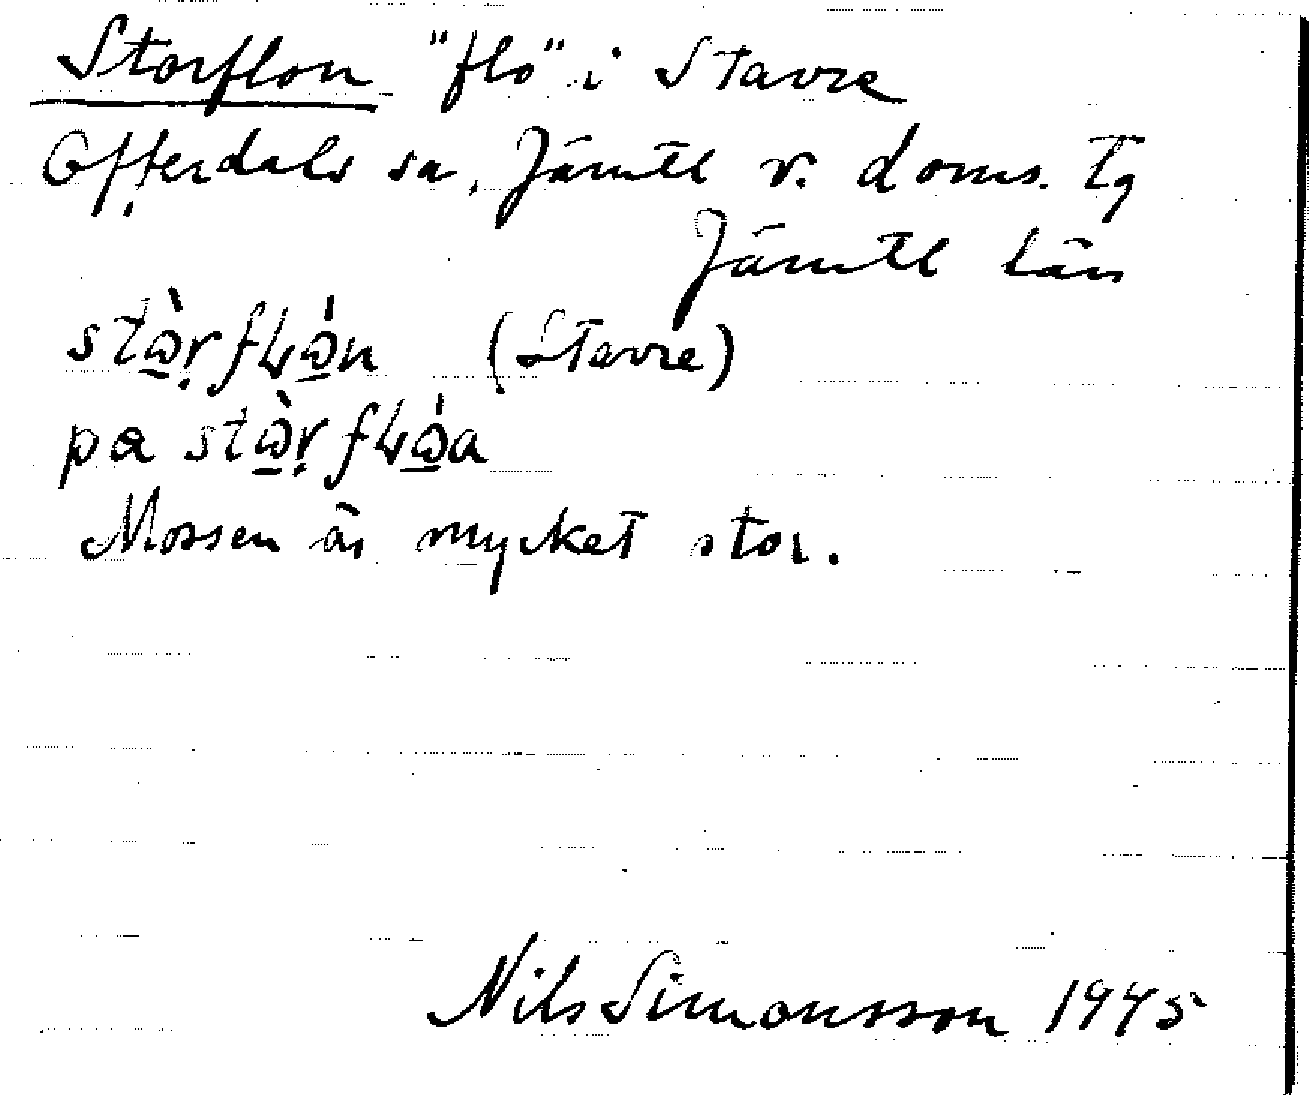 Storflon "flo" i Stavre
Offerdals sn, Jämtl v. doms. tg
Jämtl län
stꞷ̠̀ṛfɬꞷ̠́n (Stavre)
pa stꞷ̠̀ṛfɬꞷ̠́a
Mossen är mycket stor.
Nils Simonsson 1945